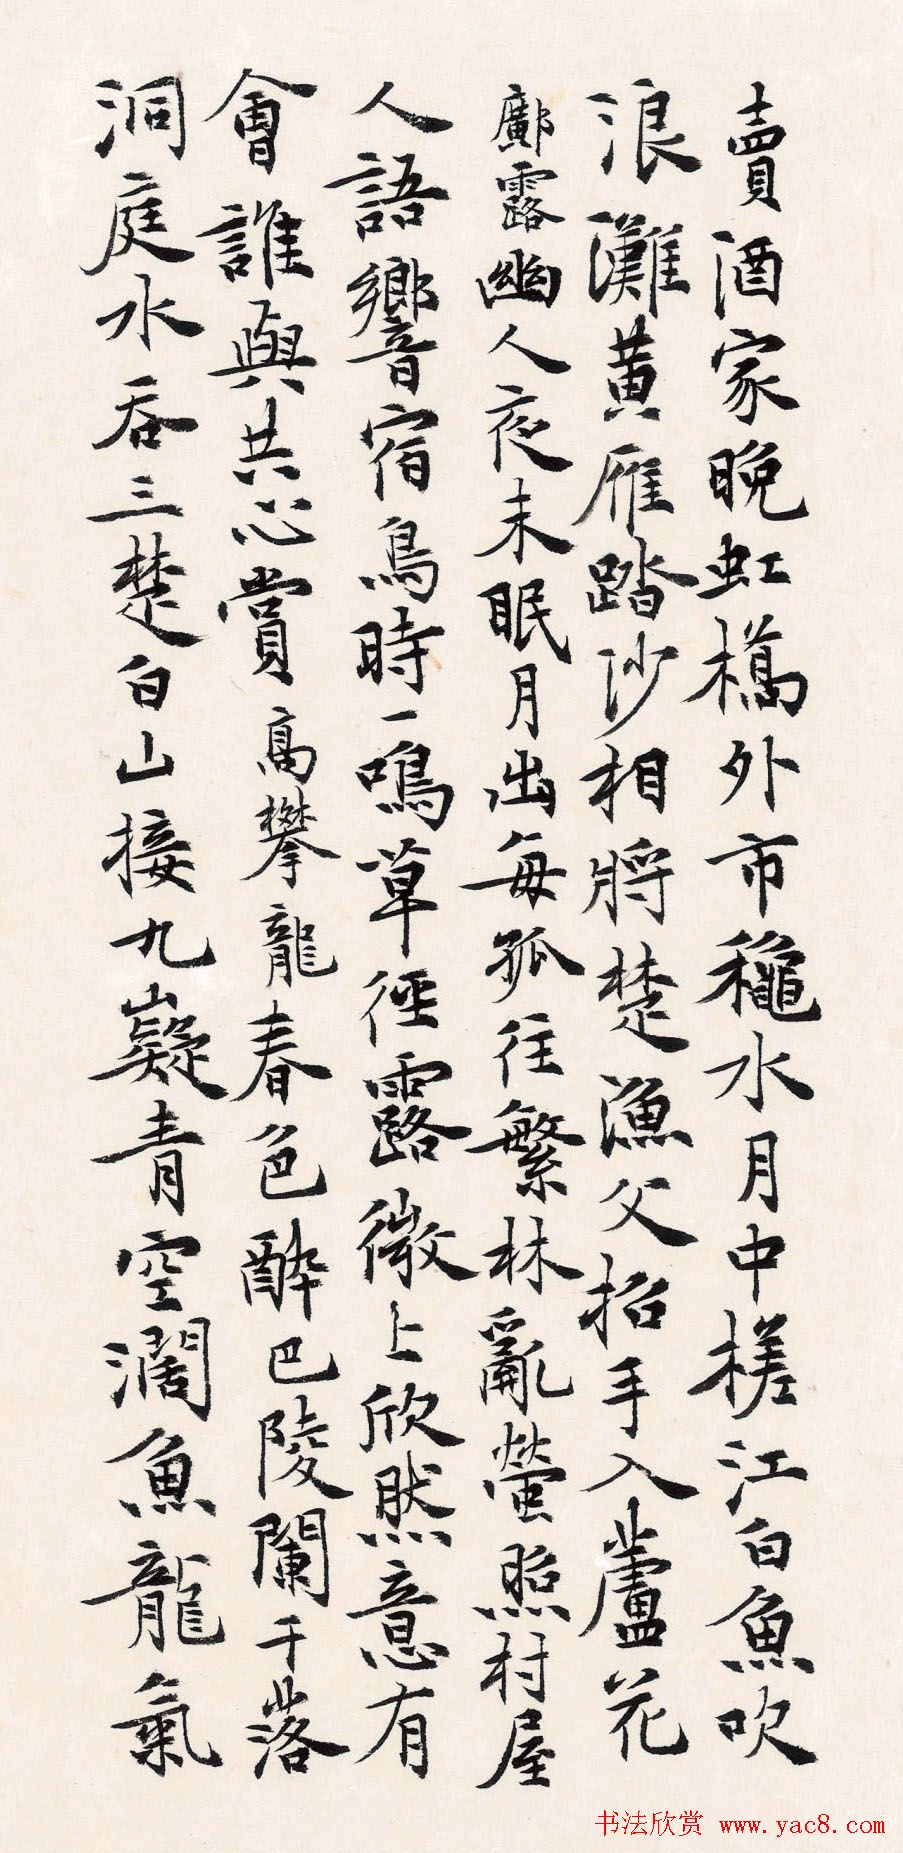 賣酒家晚虹橋外市穐水月中槎江白魚吹
浪灘黄雁踏沙相將楚漁父招手入蘆花
鄺露幽人夜未眠月出每孤往繁林亂螢照村屋
人語響宿鳥時一鳴草徑露微上欣然意有
會誰與共心賞高攀龍春色醉巴陵闌干落
洞庭水吞三楚白山接九嶷青空濶魚龍氣
书法欣赏 www.yac8.com